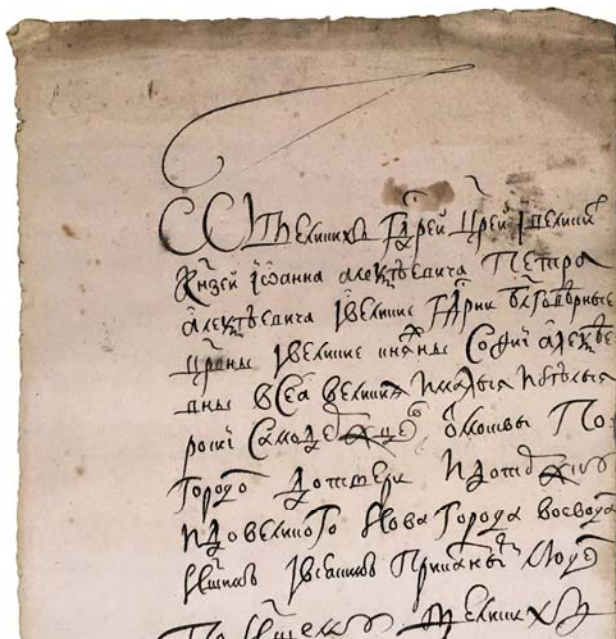 От великихъ г҃дрей ц҃рей и великих
кн҃зей Іѡанна Алексѣевича Петра
Алексѣевича и великие г҃дрни бл҃говѣрные
ц҃рвны и великие княжны Софиі Алексѣе
вны всеа великия и малыя и бѣлыя
росиі самодержцевъ от Москвы по
городом до Твери и до
и до великого Нова города воевода
нашимъ и всякимъ приказны люде
По нашему великихъ